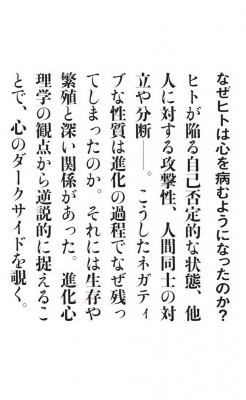 なぜヒトは心を病むようになったのか?
ヒトが陥る自己否定的な状態、他
人に対する攻撃性、人間同士の対
立や分断――。こうしたネガティ
ブな性質は進化の過程でなぜ残っ
てしまったのか。それには生存や
繁殖と深い関係があった。進化心
理学の観点から逆説的に捉えるこ
とで、心のダークサイドを覗く。